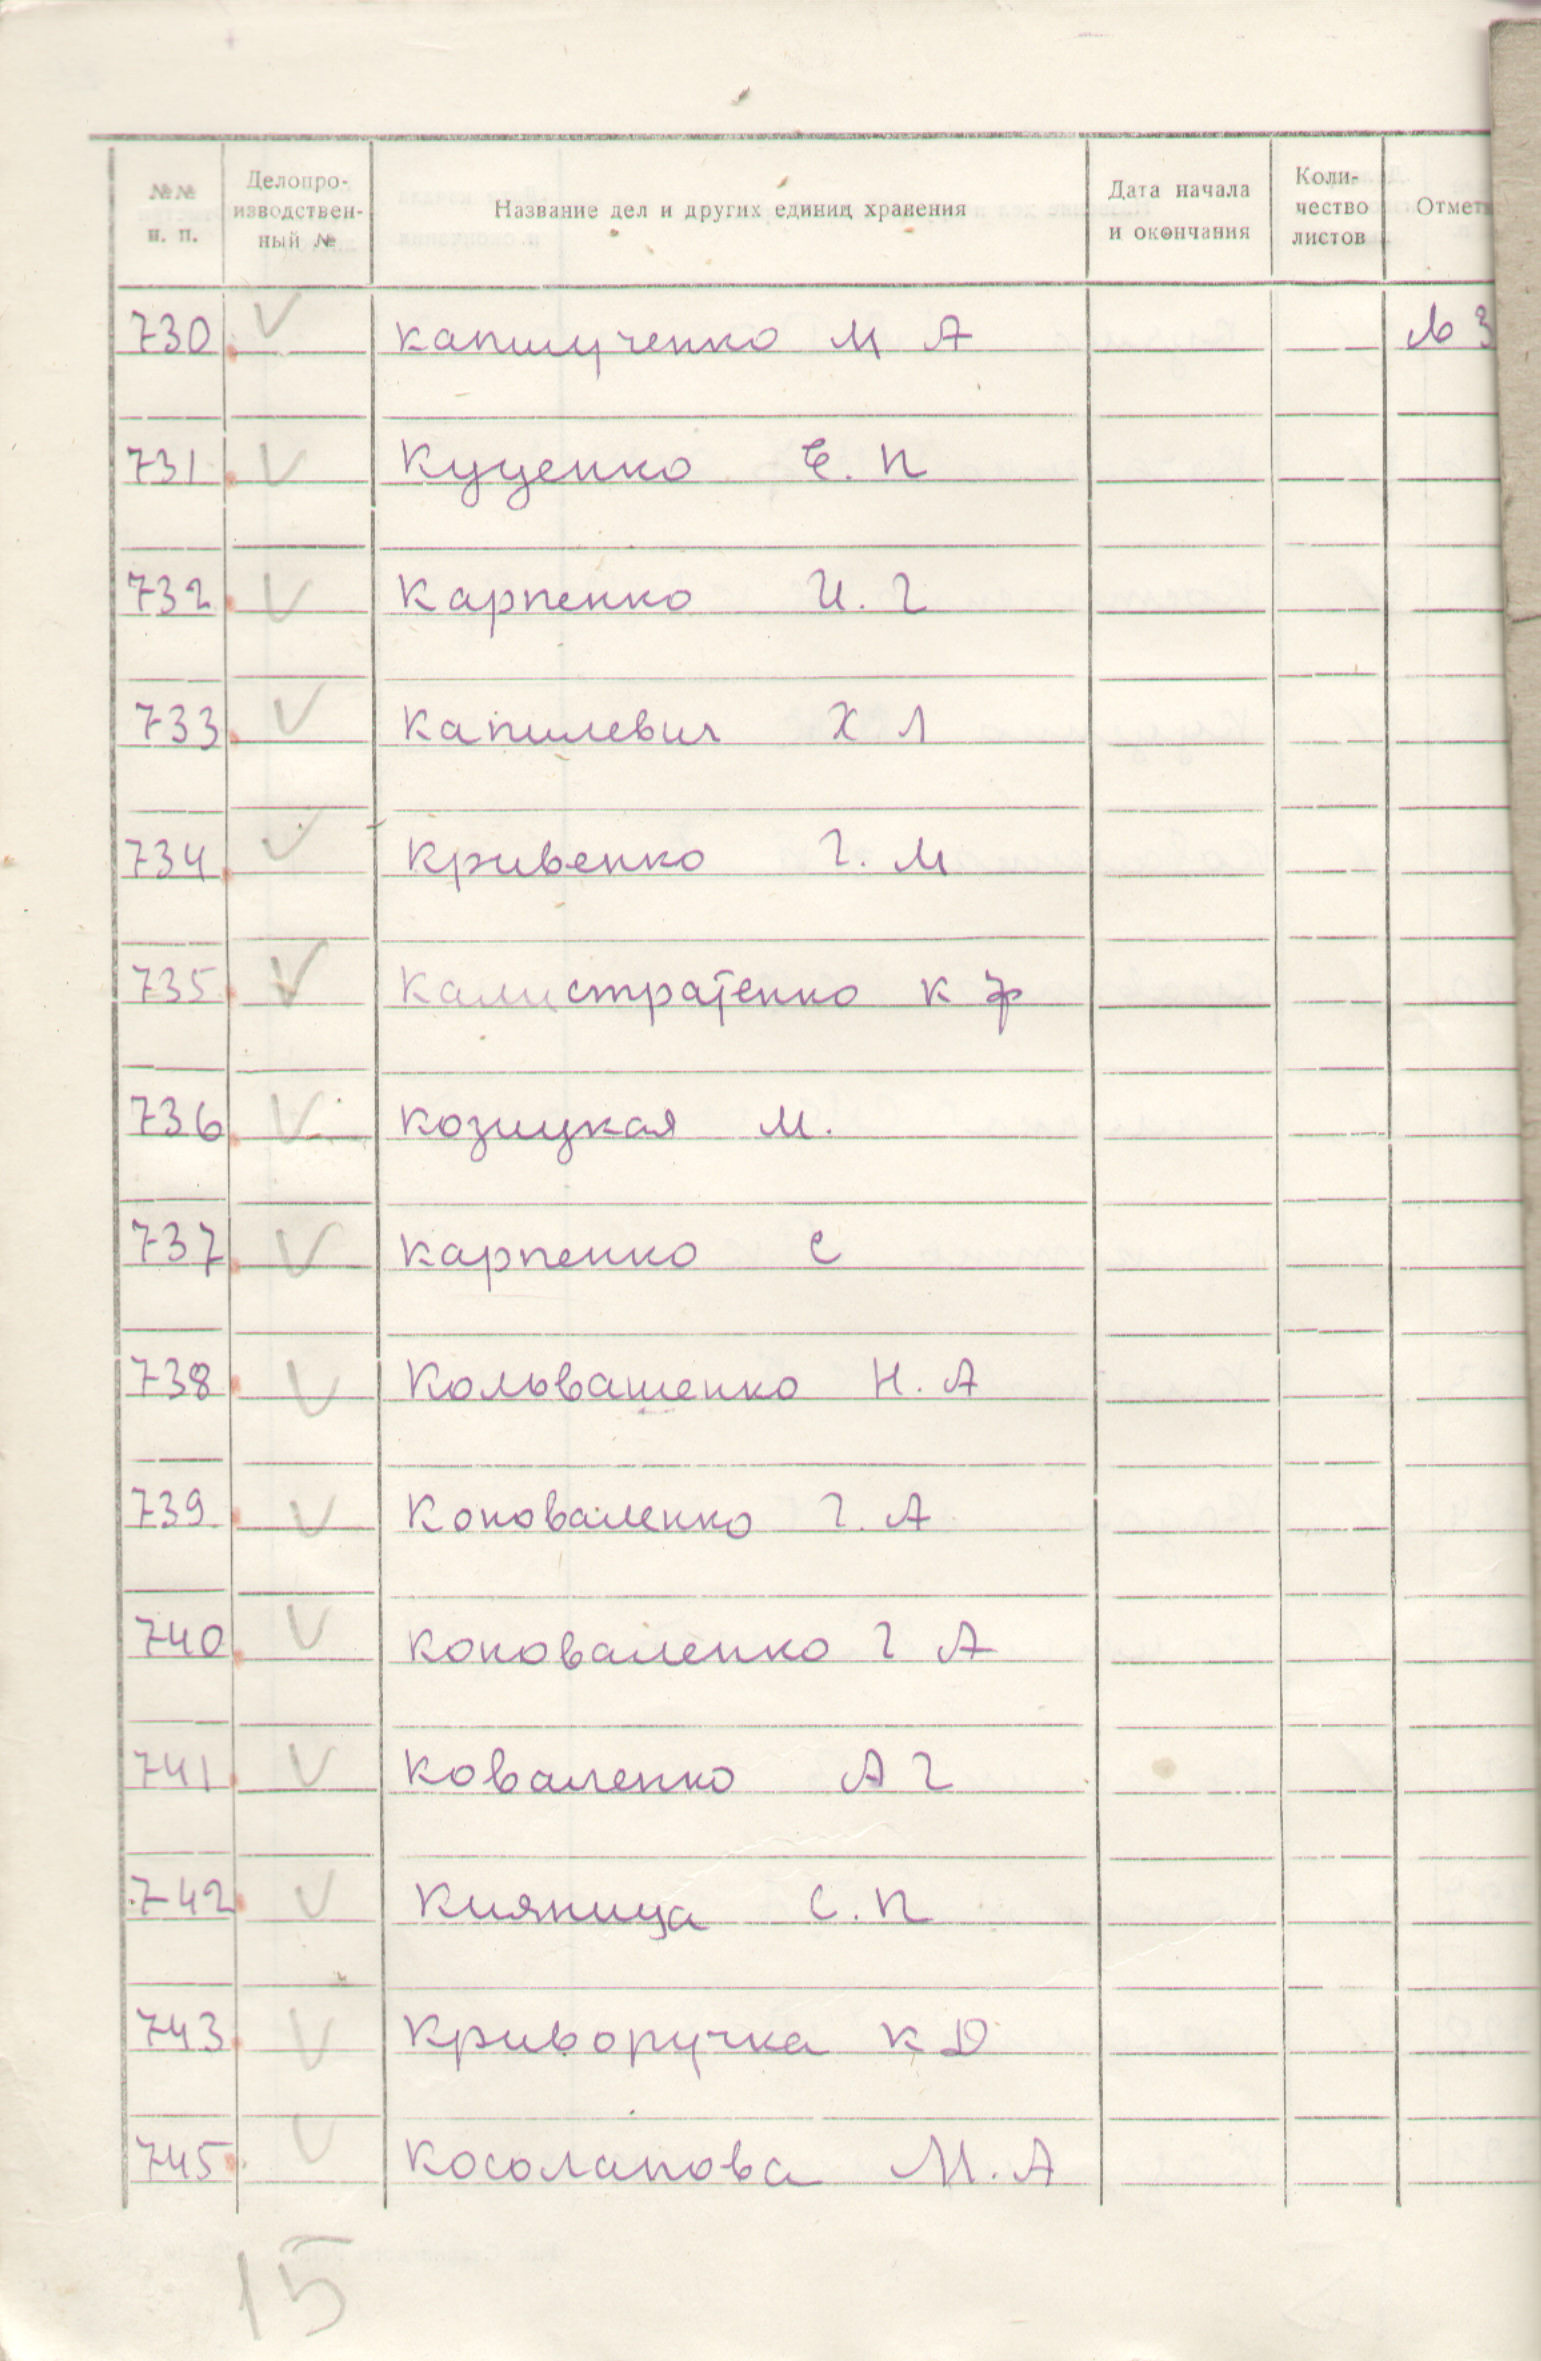 №№ п. п. Делопро-изводствен-ный № Название дел и других единиц хранения Дата начала и окончания Коли-чество листов Отмет
730 V М А
731 V Куценко Е. П
732 V Карпенко И. Г
733 V Капилевич Х Л
734 V Кривенко Г. М
735 V Калистратенко К Ф
736 V Козицкая М.
737 V Карпенко С
738 V Кольвашенко Н. А
739 V Коноваленко Г. А
740 V Коноваленко Г А
741 V Коваленко А Г
742 V Кияница С. П
743 V Криворучка К Д
745 V Косолапова М. А
15